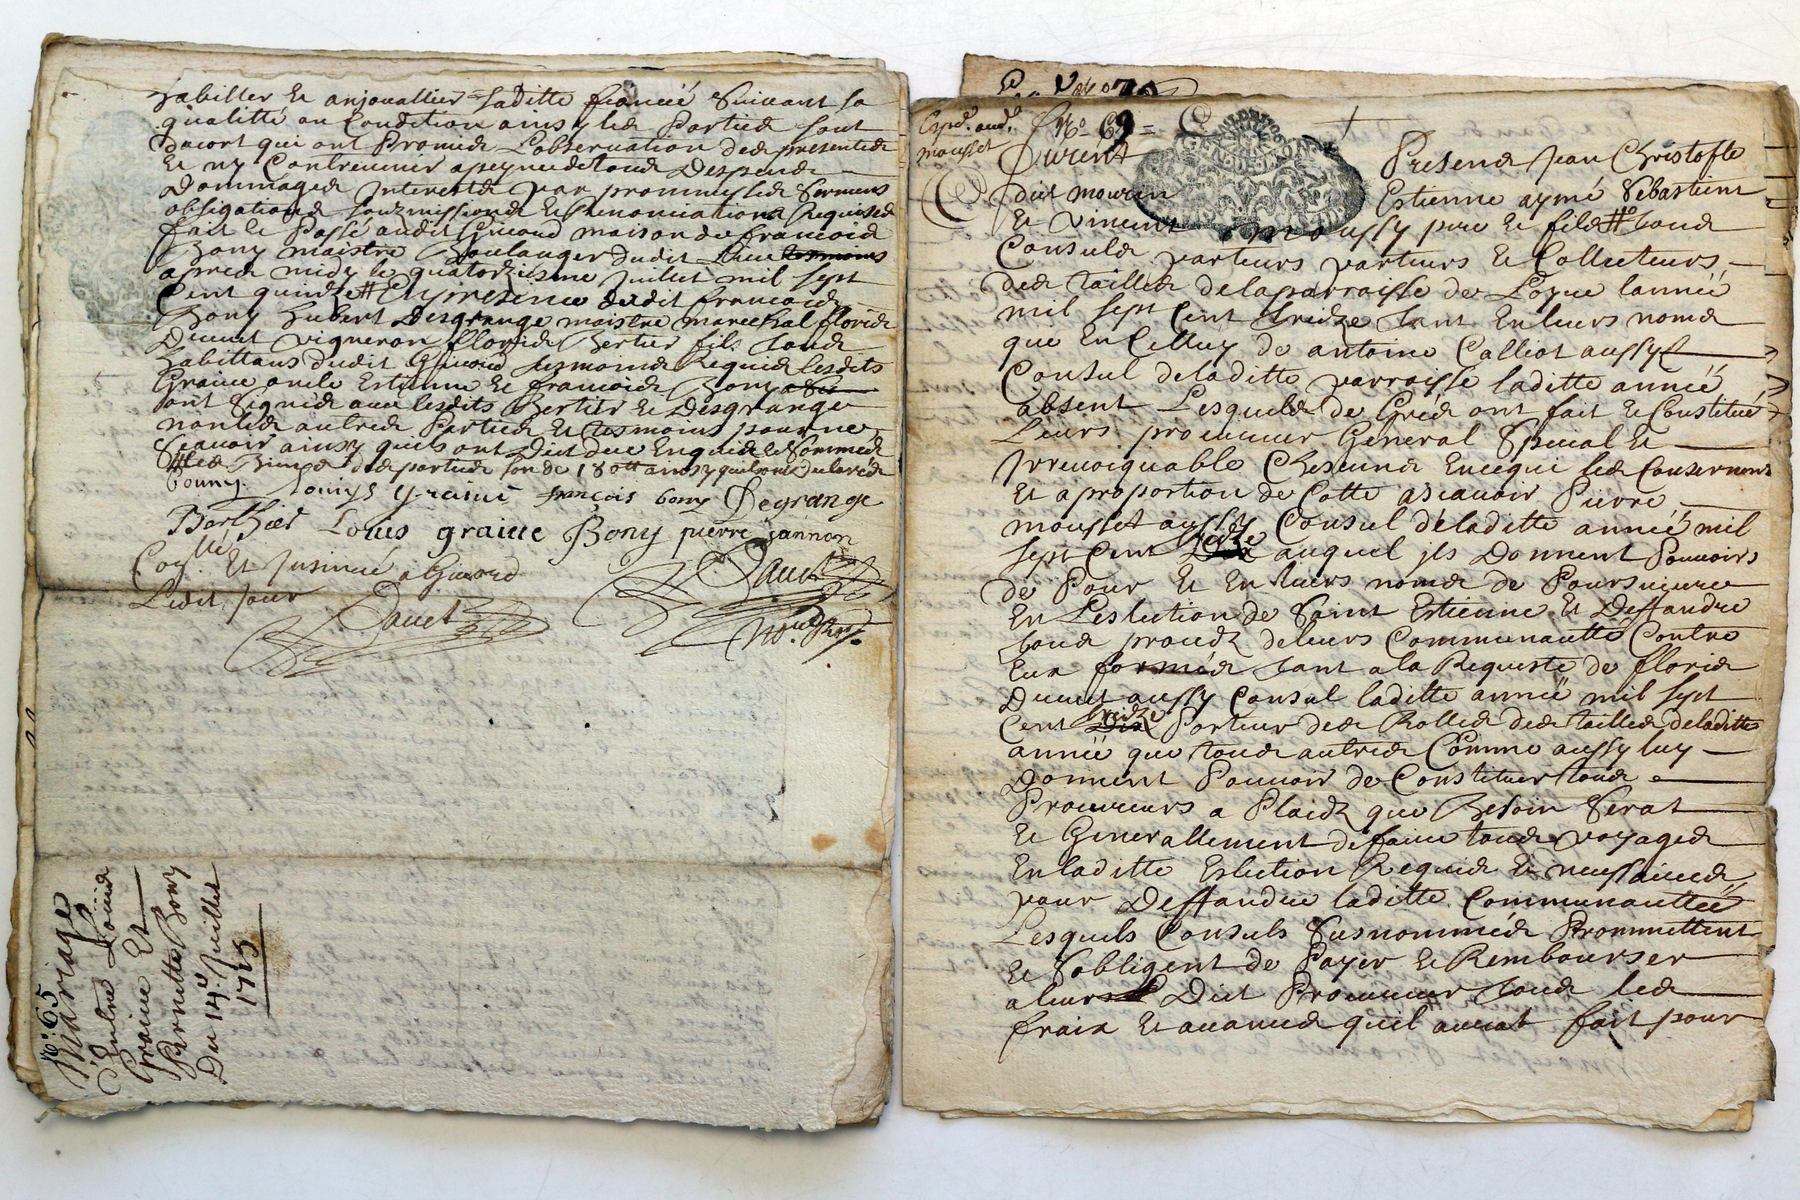 habiller et anjouallier laditte fiancéé Suivant sa
qualitté ou Condition ainsy les Parties sont
dacort qui ont Promis L'observation des presentes
Et ny Contrevenir a peyne de tous Despends
Dommages Interests par prommesses Sermens
obligations souzmissions & Renonciations Requises
fait & Passé audit Givord maison de francois
Bony maistre Boulanger dudit Lieu
apres midy le quatorziesme Juillet mil sept
Cent quinze # En presence dudit francois
Bony hubert Desgrange maistre marechal floris
Ducut vigneron floris Bertier fils tous
habittans dudit Givord tesmoins Requis lesdits
Graine oncle Estienne & francois Bony
ont Signés avec lesdits Bertier & Desgrange
non les autres Parties & tesmoins pour ne
Scavoir ainsy quils ont Dict de ce Enquis & Sommés
# les Biens des parties son de 180 tt ainsy quils ont declarés
bony. Louys graine françois bony Degrange
Barthier Louis graine Bony pierre jannon
Col.lé Et Insinué a Givord
Ledit jour
Dauet
Dauet
No.re Roy.
N.o 65
Mariage
Entre Louis
Graine Et
Pernette Bony
Du 14.e Juillet
1715
N.o 69 =
mousset
Furent
Presens Jean Christofle
dict mourin
Estienne aymé Sebastient
Et Vincent moussy pere & fils # tous
Consuls parteurs parteurs & Collecteurs
des tailles de la parroisse de Loyre lannéé
mil sept Cent treidze tant En leurs noms
que En Celluy de antoine Calliot aussy
Consul de laditte parroisse laditte annéé
absent Lesquels de Grés ont fait & Constitué
Leurs procureur General Special &
Irrevoiquable Chescuns En ce qui les Consernent
Et a proportion de Cotte ascavoir Pierre
mousset aussy Consul de laditte annéé mil
sept Cent treidze auquel jls Donnent Pouvoirs
de Pour Et En leurs noms de Poursuivre
En Leslection de Saint Estienne Et Deffandre
tous procedz de leurs Communautté Contre
Eux formés tant a la Requeste de floris
Ducut aussy Consul laditte annéé mil sept
Cent treidze Porteur des Rolles des tailles de laditte
annéé que tous autres Comme aussy luy
Donnent Pouvoir de Constituer tous
Procureurs a Plaidz que Besoin Serat
Et Generallement de faire tous voyages
En laditte Eslection Requis & neussaires
pour Deffandre laditte Communauttéé
Lesquels Consuls Susnommés Prommettent
& Sobligent de Payer & Rembourser
a leurs Dict Procureur tous les
fraix & avances quil aurat fait pour